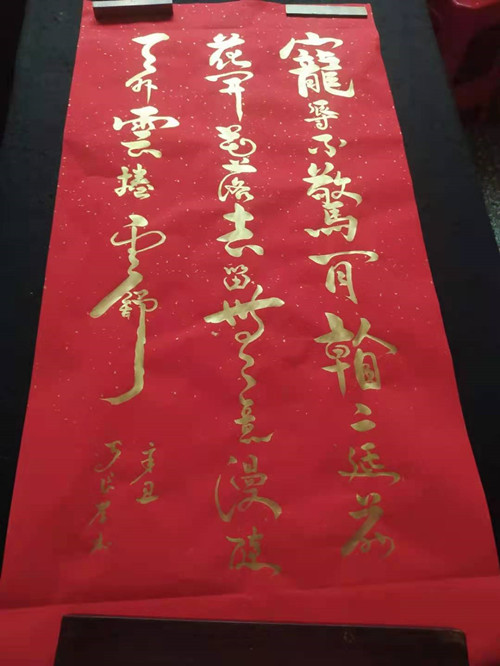 寵辱不驚閒看庭前
花開花落去留無意漫隨
天外雲捲雲舒
辛丑